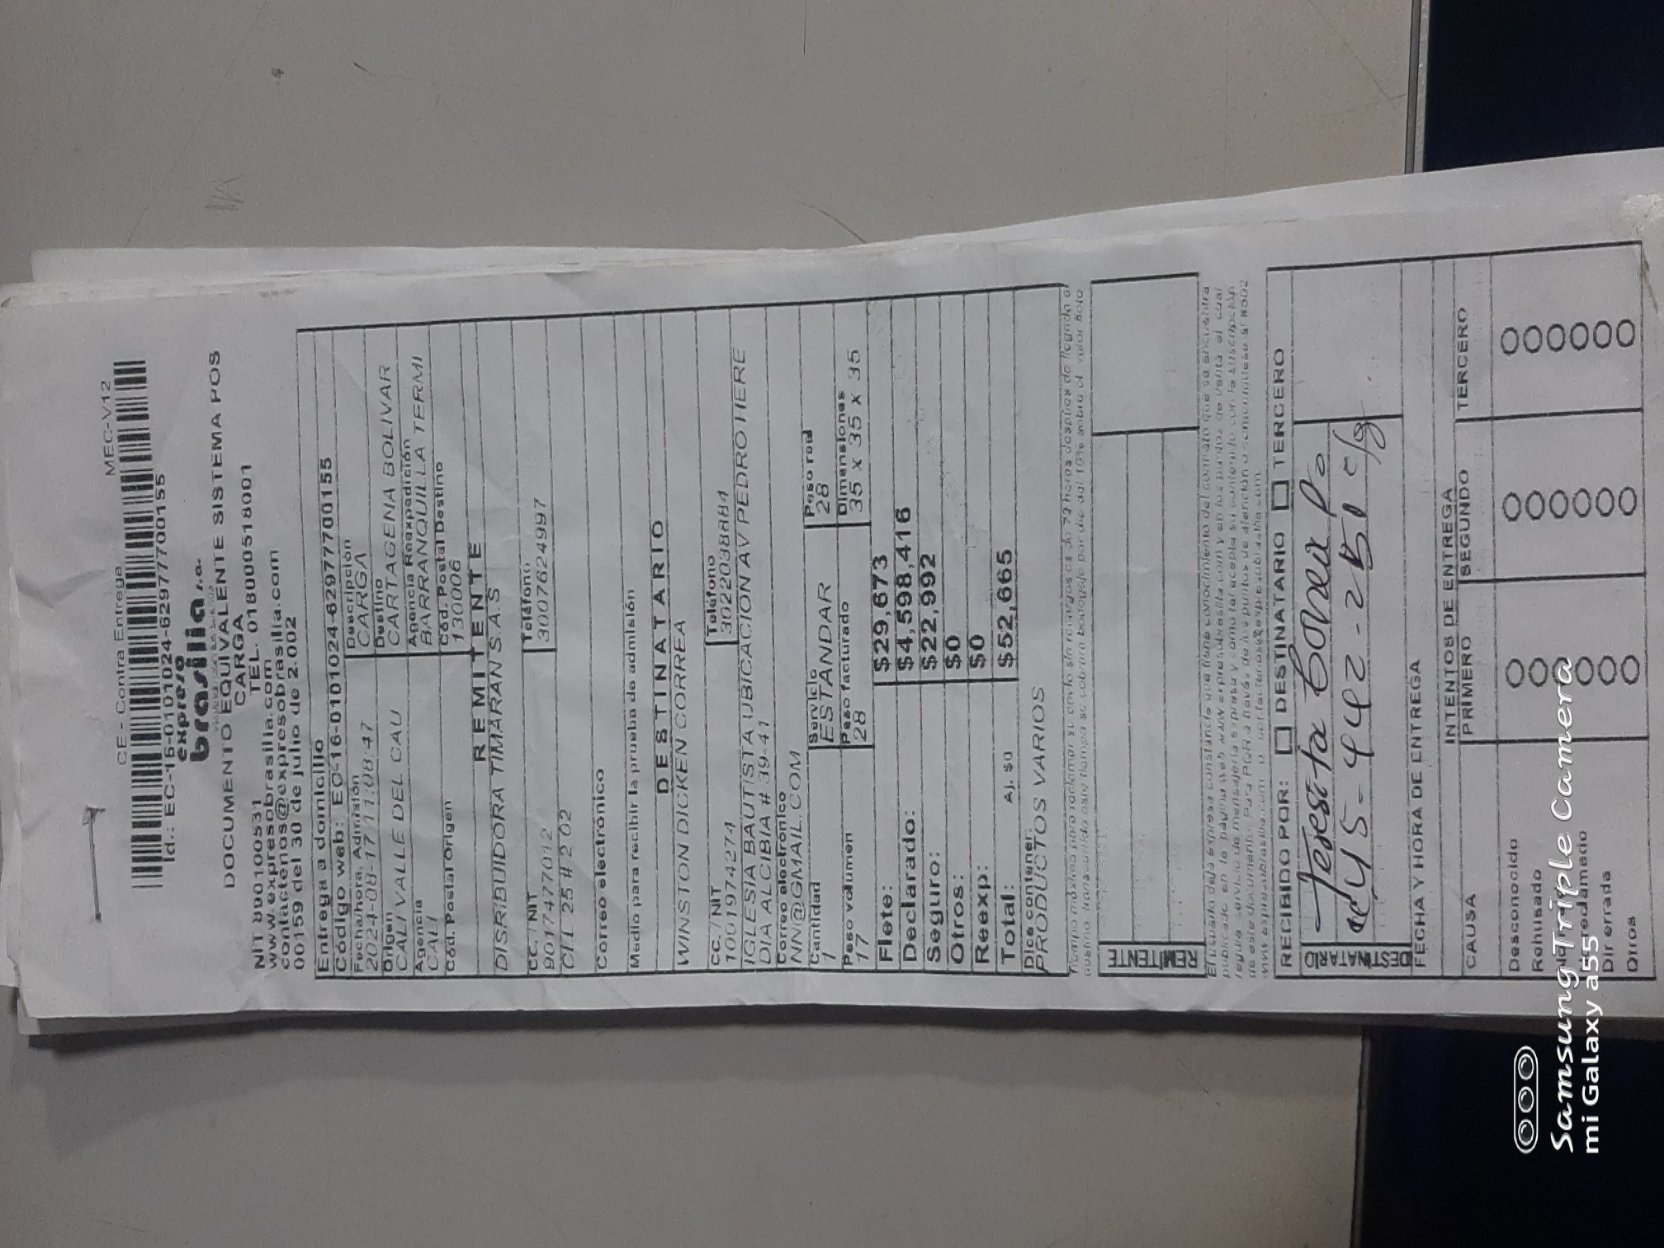 CE - Contra Entrega MEC-V12
Id.: EC-16-0101024-6297770015​5
expreso
brasilia s.a.
DOCUMENTO EQUIVALENTE SISTEMA POS
CARGA
NIT 890100531 TEL. 018000518001
www.expresobrasilia.com
contactenos@expresobrasilia.com
00159 del 30 de julio de 2.002
Entrega a domicilio
Código web: EC-16-0101024-62977700155
Fecha/hora. Admisión Descripción
2024-08-17 11:08:47 CARGA
Origen Destino
CALI VALLE DEL CAU CARTAGENA BOLIVAR
Agencia Agencia Reexpedición
CALI BARRANQUILLA TERMI
Cód. Postal Origen Cód. Postal Destino
130006
REMITENTE
DISRIBUIDORA TIMARAN S.A.S
CC. / NIT Teléfono
9017477012 3007624997
Cll 25 # 2 02
Correo electrónico
Medio para recibir la prueba de admisión
DESTINATARIO
WINSTON DICKEN CORREA
CC. / NIT Teléfono
1001974274 3022038884
IGLESIA BAUTISTA UBICACION AV PEDRO HERE
DIA ALCIBIA # 39-41
Correo electrónico
NN@GMAIL.COM
Cantidad Servicio Peso real
1 ESTANDAR 28
Peso volumen Peso facturado Dimensiones
17 28 35 x 35 x 35
Flete: $29,673
Declarado: $4,598,416
Seguro: $22,992
Otros: $0
Reexp: $0
Total: Aj. $0 $52,665
Dice contener
PRODUCTOS VARIOS
REMITENTE
RECIBIDO POR: DESTINATARIO TERCERO
DESTINATARIO
FECHA Y HORA DE ENTREGA
INTENTOS DE ENTREGA
CAUSA PRIMERO SEGUNDO TERCERO
Desconocido
Rehusado
Dir errada
Otros
Samsung Triple Camera
mi Galaxy a55